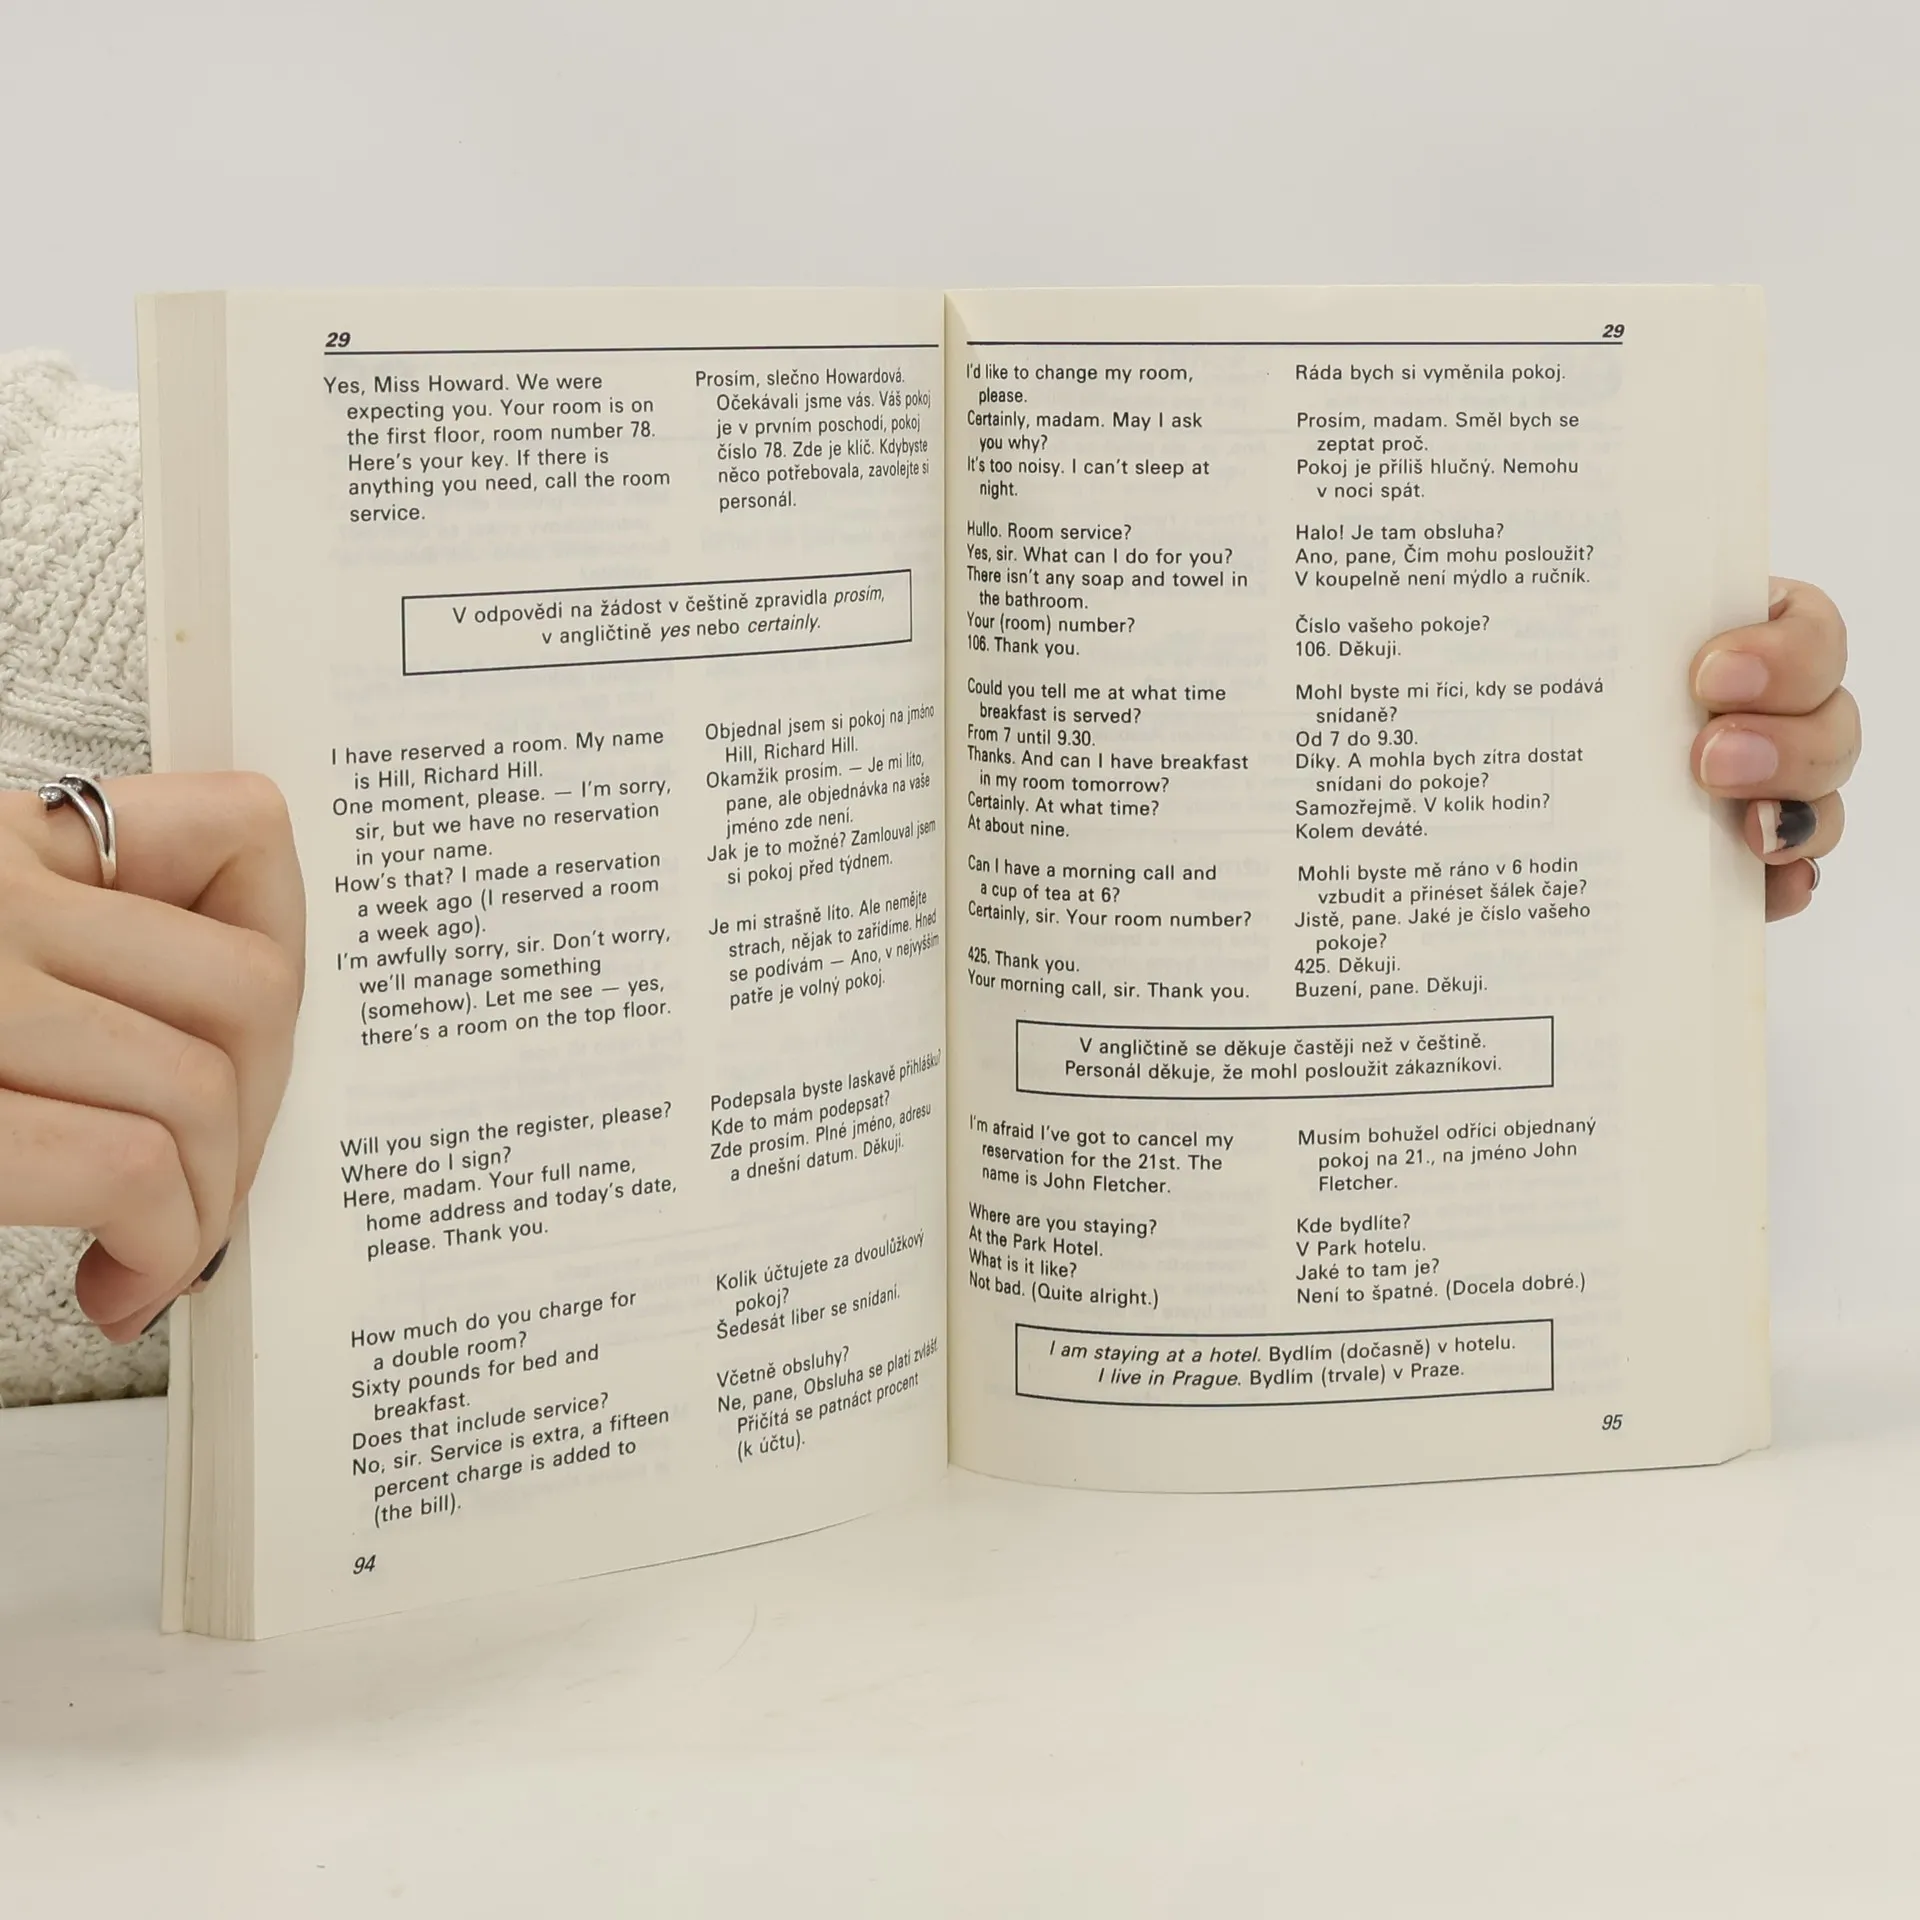 29
Yes, Miss Howard. We were
expecting you. Your room is on
the first floor, room number 78.
Here's your key. If there is
anything you need, call the room
service.
Prosím, slečno Howardová.
Očekávali jsme vás. Váš pokoj
je v prvním poschodí, pokoj
číslo 78. Zde je klíč. Kdybyste
něco potřebovala, zavolejte si
personál.
V odpovědi na žádost v češtině zpravidla prosím,
v angličtině yes nebo certainly.
I have reserved a room. My name
is Hill, Richard Hill.
One moment, please. — I'm sorry,
sir, but we have no reservation
in your name.
How's that? I made a reservation
a week ago (I reserved a room
a week ago).
I'm awfully sorry, sir. Don't worry,
we'll manage something
(somehow). Let me see — yes,
there's a room on the top floor.
Objednal jsem si pokoj na jméno
Hill, Richard Hill.
Okamžik prosím. — Je mi líto,
pane, ale objednávka na vaše
jméno zde není.
Jak je to možné? Zamlouval jsem
si pokoj před týdnem.
Je mi strašně líto. Ale nemějte
strach, nějak to zařídíme. Hned
se podívám — Ano, v nejvyšším
patře je volný pokoj.
Will you sign the register, please?
Where do I sign?
Here, madam. Your full name,
home address and today's date,
please. Thank you.
Podepsala byste laskavě přihlášku?
Kde to mám podepsat?
Zde prosím. Plné jméno, adresu
a dnešní datum. Děkuji.
How much do you charge for
a double room?
Sixty pounds for bed and
breakfast.
Does that include service?
No, sir. Service is extra, a fifteen
percent charge is added to
(the bill).
Kolik účtujete za dvoulůžkový
pokoj?
Šedesát liber se snídaní.
Včetně obsluhy?
Ne, pane, Obsluha se platí zvlášť.
Přičítá se patnáct procent
(k účtu).
94
29
I'd like to change my room,
please.
Certainly, madam. May I ask
you why?
It's too noisy. I can't sleep at
night.
Ráda bych si vyměnila pokoj.
Prosím, madam. Směl bych se
zeptat proč.
Pokoj je příliš hlučný. Nemohu
v noci spát.
Hullo. Room service?
Yes, sir. What can I do for you?
There isn't any soap and towel in
the bathroom.
Your (room) number?
106. Thank you.
Halo! Je tam obsluha?
Ano, pane, Čím mohu posloužit?
V koupelně není mýdlo a ručník.
Číslo vašeho pokoje?
106. Děkuji.
Could you tell me at what time
breakfast is served?
From 7 until 9.30.
Thanks. And can I have breakfast
in my room tomorrow?
Certainly. At what time?
At about nine.
Mohl byste mi říci, kdy se podává
snídaně?
Od 7 do 9.30.
Díky. A mohla bych zítra dostat
snídani do pokoje?
Samozřejmě. V kolik hodin?
Kolem deváté.
Can I have a morning call and
a cup of tea at 6?
Certainly, sir. Your room number?
425. Thank you.
Your morning call, sir. Thank you.
Mohli byste mě ráno v 6 hodin
vzbudit a přinéset šálek čaje?
Jistě, pane. Jaké je číslo vašeho
pokoje?
425. Děkuji.
Buzení, pane. Děkuji.
V angličtině se děkuje častěji než v češtině.
Personál děkuje, že mohl posloužit zákazníkovi.
I'm afraid I've got to cancel my
reservation for the 21st. The
name is John Fletcher.
Musím bohužel odříci objednaný
pokoj na 21., na jméno John
Fletcher.
Where are you staying?
At the Park Hotel.
What is it like?
Not bad. (Quite alright.)
Kde bydlíte?
V Park hotelu.
Jaké to tam je?
Není to špatné. (Docela dobré.)
I am staying at a hotel. Bydlím (dočasně) v hotelu.
I live in Prague. Bydlím (trvale) v Praze.
95